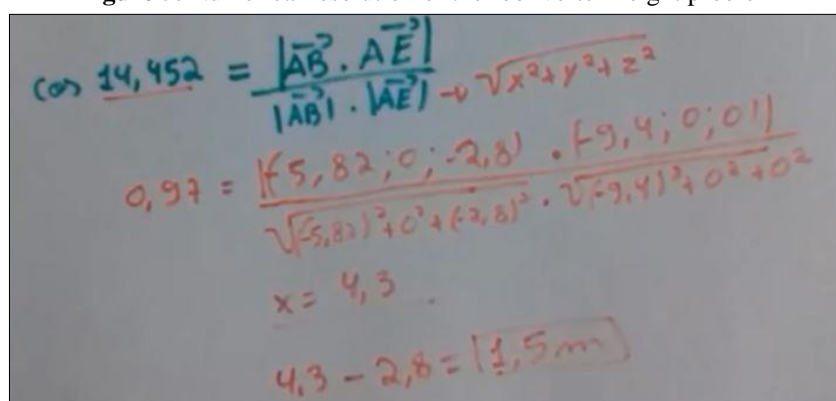 cos 14,452 = |AB⃗ . AE⃗| / |AB⃗| . |AE⃗| → √x²+y²+z²
0,97 = |(-5,82;0;-2,8) . (-9,4;0;0)| / √(-5,82)²+0²+(-2,8)² . √(-9,4)²+0²+0²
x = 4,3
4,3 - 2,8 = 1,5m